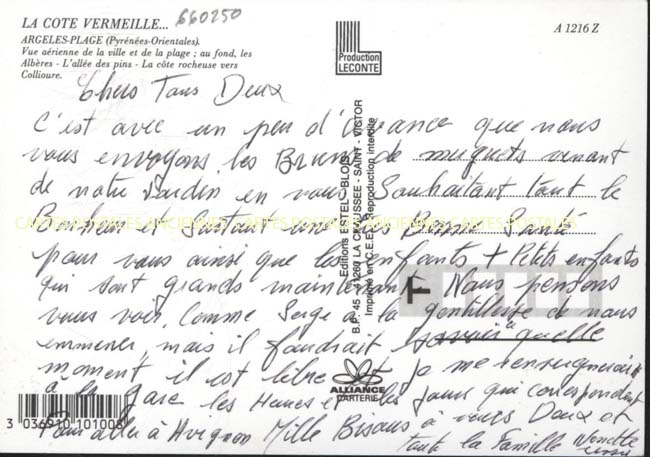 LA COTE VERMEILLE...
660250
ARGELES-PLAGE (Pyrénées-Orientales).
Vue aérienne de la ville et de la plage ; au fond, les
Albères - L'allée des pins - La côte rocheuse vers
Collioure.
Production
LECONTE
A 1216 Z
Chers Tous Deux
C'est avec un peu d'avance que nous
vous envoyons les Brins de muguets venant
de notre Jardin en vous Souhaitant tout le
Bonheur et Surtout une très Bonne Santé
pour vous ainsi que les enfants + Petits enfants
qui sont grands maintenant. Nous pensons
vous voir. Comme Serge à la gentillesse de nous
emmener, mais il faudrait savoir à quelle
moment il est libre et je me renseignerais
à la gare les Heures et les Jours qui correspondent
Pour aller à Avignon Mille Bisous à vous Deux et
toute la Famille Nenette
CARTES POSTALES ANCIENNES CARTES POSTALES ANCIENNES CARTES POSTALES
Editions VALESTEL-BLOIS
B.P. 45 - 41260 LA CHAUSSEE - SAINT - VICTOR
Imprimé en C.E.E. Reproduction interdite
T
ALLIANCE
CARTERIE
3 036910 101008